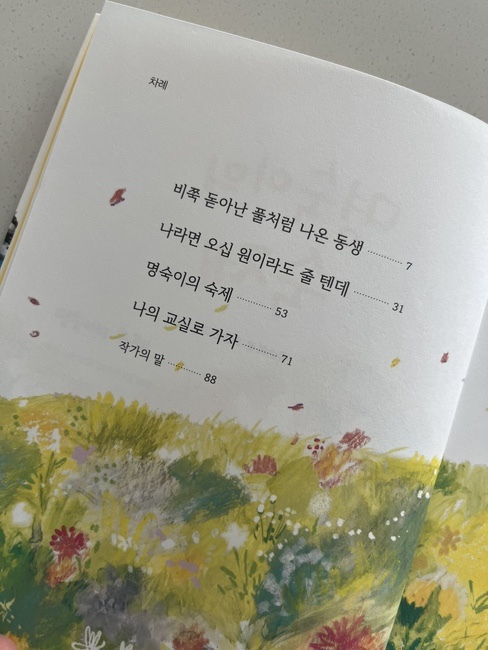 차례
비쭉 돋아난 풀처럼 나온 동생 ·········· 7
나라면 오십 원이라도 줄 텐데 ·········· 31
명숙이의 숙제 ·········· 53
나의 교실로 가자 ·········· 71
작가의 말 ·········· 88